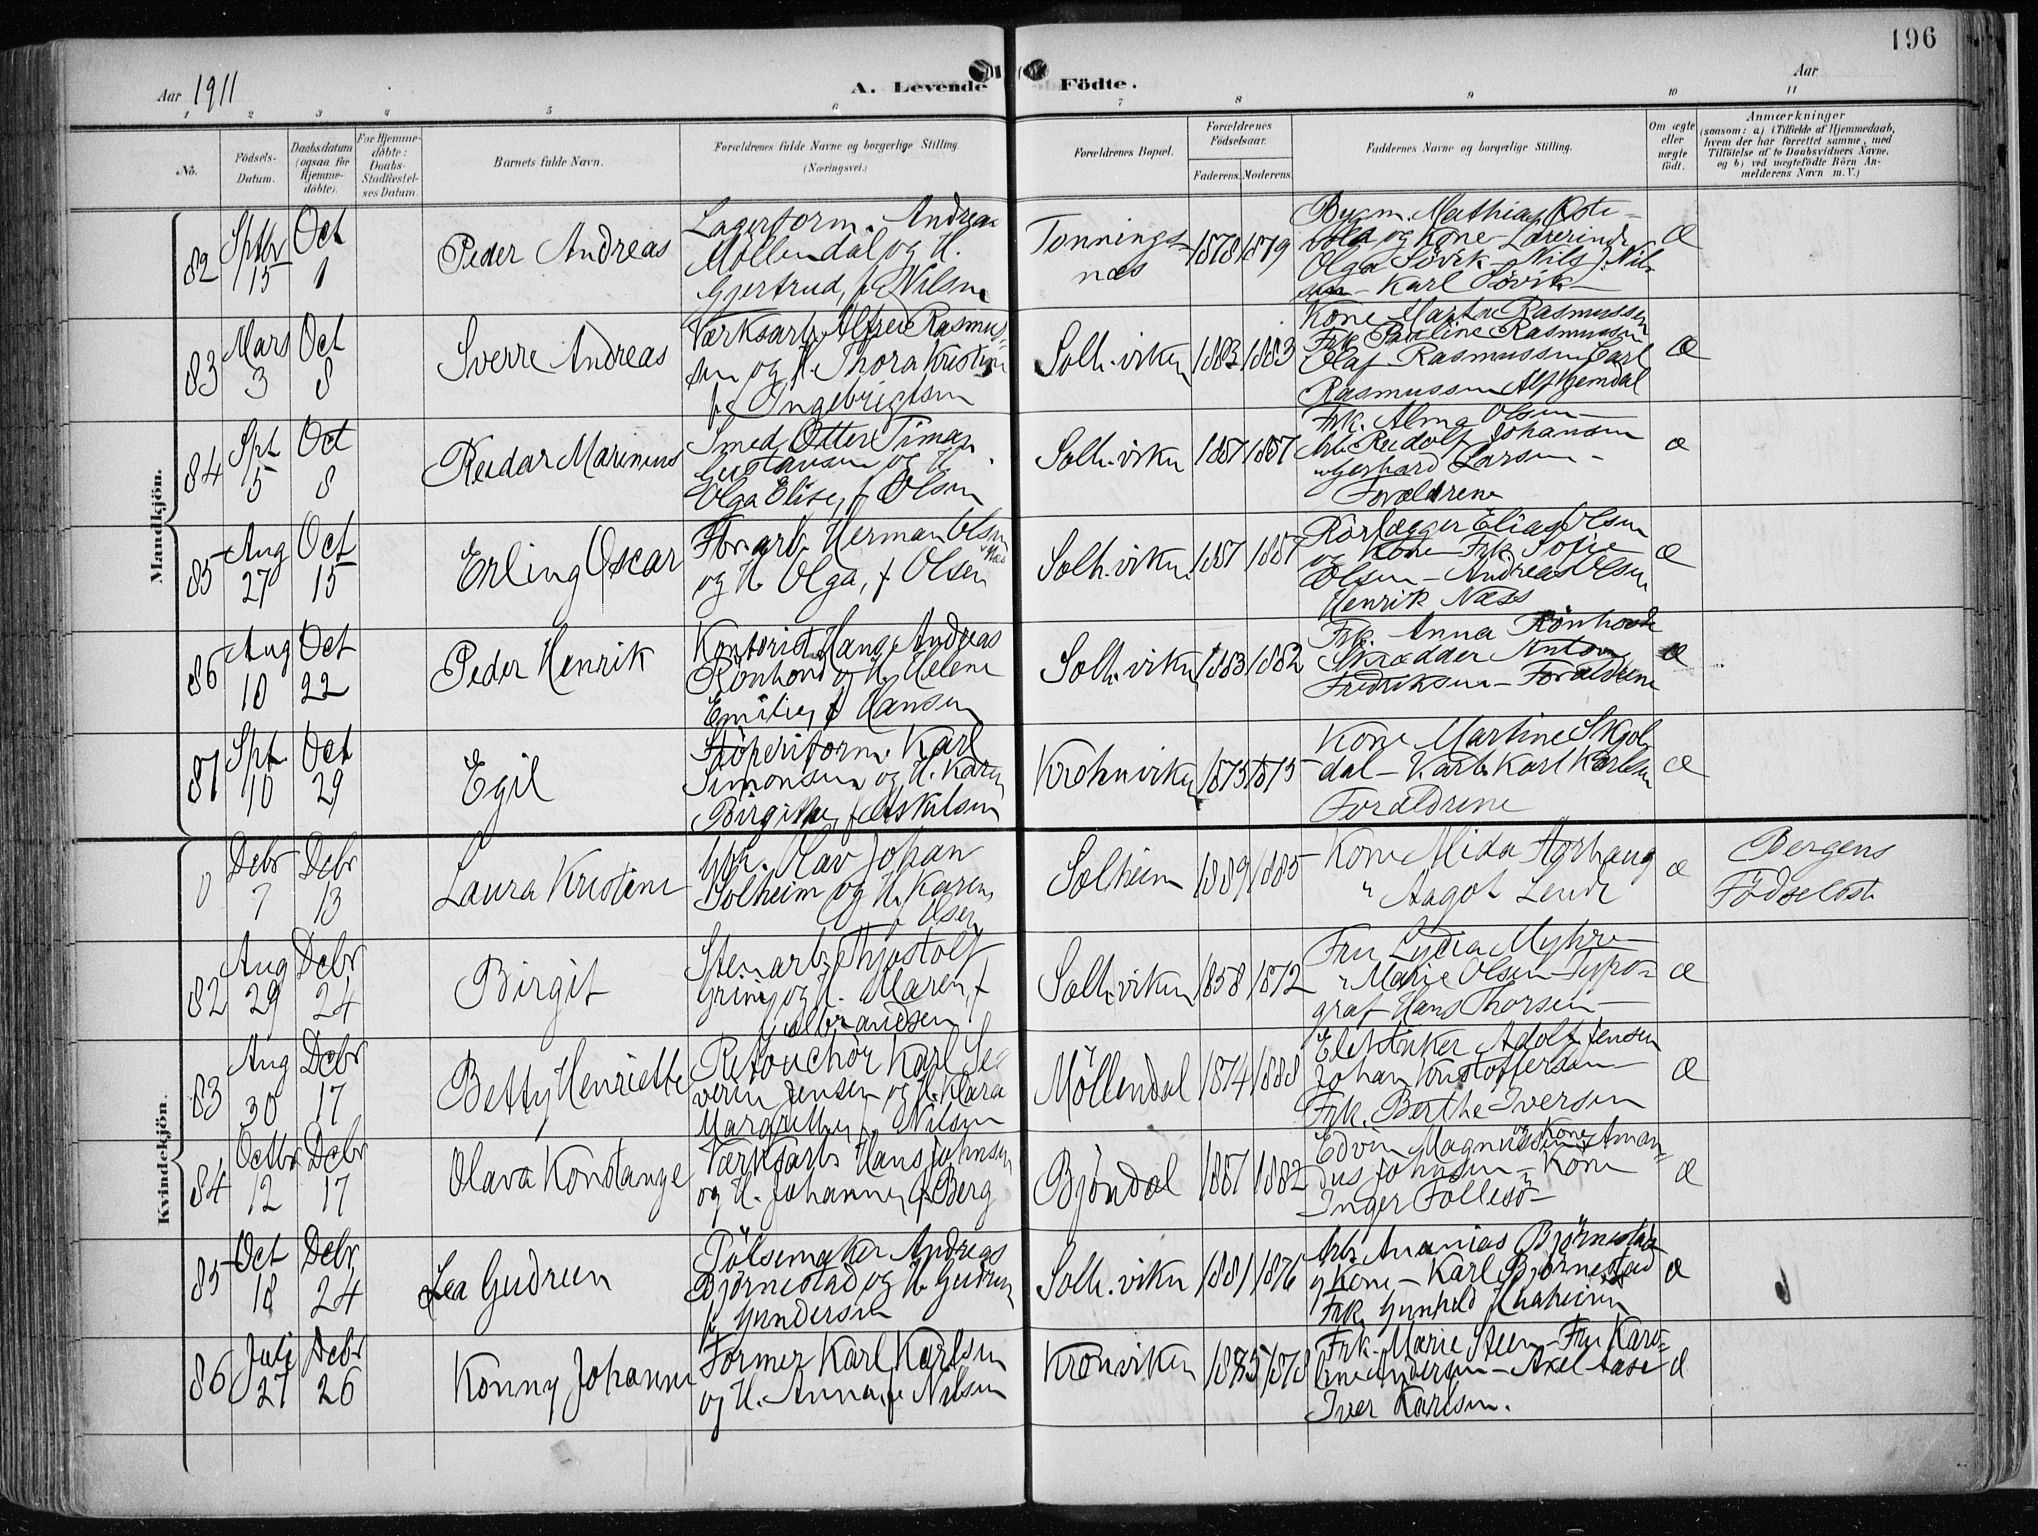 196
Aar 1911
A. Levende Födte.
Aar
1 2 3 4 5 6 7 8 9 10 11
No.
Födsels-Datum.
Daabsdatum (ogsaa for Hjemme-döbte).
For Hjemme-döbte: Daabs-Stadfæstel-ses Datum.
Barnets fulde Navn.
Forældrenes fulde Navne og borgerlige Stilling.
(Næringsvei.)
Forældrenes Bopæl.
Forældrenes Födselsaar.
Faderens. Moderens.
Faddernes Navne og borgerlige Stilling.
Om ægte eller uægte födt.
Anmærkninger
(saasom: a) i Tilfælde af Hjemmedaab, hvem der har forrettet samme, med Tilföielse af to Daabsvidners Navne, og b) ved uægtefödte Börn An-melderens Navn m. V.)
Mandkjön.
82 Septbr 15 Oct 1
Peder Andreas
Lagerform. Andreas
Möllendal og H.
Gjertrud, f. Nilsen
Tonnings-
næs
1878 1879
Bygm. Mathias Oste-
vold og Kone - Lærerinde
Olga Søvik - Nils J. Nil-
sen - Karl Søvik
æ
83 Mars 3 Oct 8
Sverre Andreas
Værksarb. Alfred Rasmus-
sen og H. Thora Kristine
f. Ingebrigtsen
Solh.viken
1883 1883
Kone Marta Rasmussen
Frk. Pauline Rasmussen
Olaf Rasmussen Carl
Rasmussen Alf
æ
84 Spt 5 Oct 8
Reidar Marinius
Smed Otter Timan
Gustavsen og H.
Olga Elise, f. Olsen
Solh.viken
1887 1887
Frk. Alma Olsen
Arb. Reidolf Johansen
" Gerhard Larsen -
Forældrene
æ
85 Aug 27 Oct 15
Erling Oscar
For. arb. Herman Olsen
Næss
og H. Olga, f. Olsen
Solh.viken
1887 1887
Rørlægger Elias Olsen
og Kone - Frk. Sofie
Olsen - Andreas Olsen
Henrik Næss
æ
86 Aug 10 Oct 22
Peder Henrik
Kontorist Hans Andreas
Rönhovd og H. Helene
Emilie, f. Hansen
Solh.viken
1883 1882
Frk. Anna Rönhovde
Skrædder Anton
Fredriksen - Forældrene
æ
87 Spt 10 Oct 29
Egil
Støperiform. Karl
Simonsen og H. Karen
Birgitte, f. Askilsen
Krohnviken
1875 1875
Kone Martine Skjol
dal - V.arb. Karl Karlsen
Forældrene
æ
Kvindekjön.
0 Debr 7 Debr 13
Laura Kristine
Olav Johan
Solheim og H. Karen,
f. Olsen
Solheim
1889 1885
Kone Mida Aarhaug
" Aagot Lende
æ
Bergens
Födselsst.
82 Aug 29 Debr 24
Birgit
Stenarb. Thjostolf
Grini og H. Maren, f.
Gulbrandsen
Solh.viken
1858 1872
Fru Lydia Myhre
" Marie Olsen - Typo-
graf Hans Thorsen -
æ
83 Aug 30 Debr 17
Betty Henriette
Retouchör Karl Se-
verin Jensen og H. Klara
Margrethe, f. Nilsen
Möllendal
1874 1888
Elektriker Adolf Jensen
Johan Kristoffersen -
Frk. Berthe Iversen
æ
84 Octbr 12 Debr 17
Olava Konstanze
Værksarb. Hans Johnsen
og H. Johanne, f. Berg
Bjöndal
1887 1882
Edvin Magnussen og Kone - Aman-
dus Johnsen - Kone
Inger Follesö -
æ
85 Oct 18 Debr 24
Lea Gudrun
Pölsemaker Andreas
Björnestad og H. Gudrun
f. Gundersen
Solh.viken
1881 1876
Arb. Ananias Björnestad
og Kone - Karl Björnestad
Frk. Gunhild
æ
86 Juli 27 Debr 26
Konny Johanne
Former Karl Karlsen
og H. Anna, f. Nilsen
Kronviken
1875 1878
Frk. Marie Steen - Fru Karo-
line Andersen - Axel Aase
Iver Karlsen.
æ